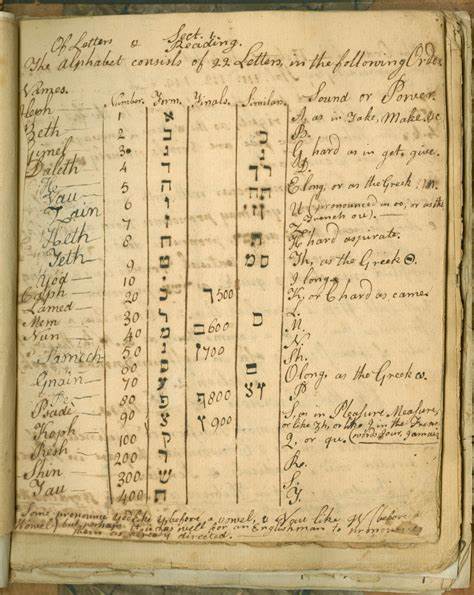 Sect.
Of Letters & Reading.
The Alphabet consists of 22 Letters, in the following Order
Names. Number. Form. Finals. Similar. Sound or Power.
Aleph 1 א A, as in Take, Make, &c
Beth 2 ב B.
Gimel 3 ג G hard as in get, give.
Daleth 4 ד D.
He 5 ה E long, or as the Greek η.
Vau 6 ו U (pronounced in oo, or as the French ou).
Zain 7 ז
Heth 8 ח H hard aspirate.
Teth 9 ט Th, as the Greek Θ.
Yod 10 י I long.
Caph 20 כ ך 500 K, or C hard as came
Lamed 30 ל L.
Mem 40 מ ם 600 ס M.
Nun 50 נ ן 700 N.
Samech 60 ס Sh.
Gnain 70 ע O long, as the Greek ω.
80 פ ף 800 P
Psadi 90 צ ץ 900 S, or in Pleasure, Measure,
or like Zh, or the J in the French
Koph 100 ק Q, or qu. (words jour, jamais
Resh 200 ר R.
Shin 300 ש S.
Tau 400 ת T.
Some pronounce Yod like y before a vowel, & Vau like W (before a
Vowel) but perhaps it is as well for an Englishman to pronounce
them as already directed.